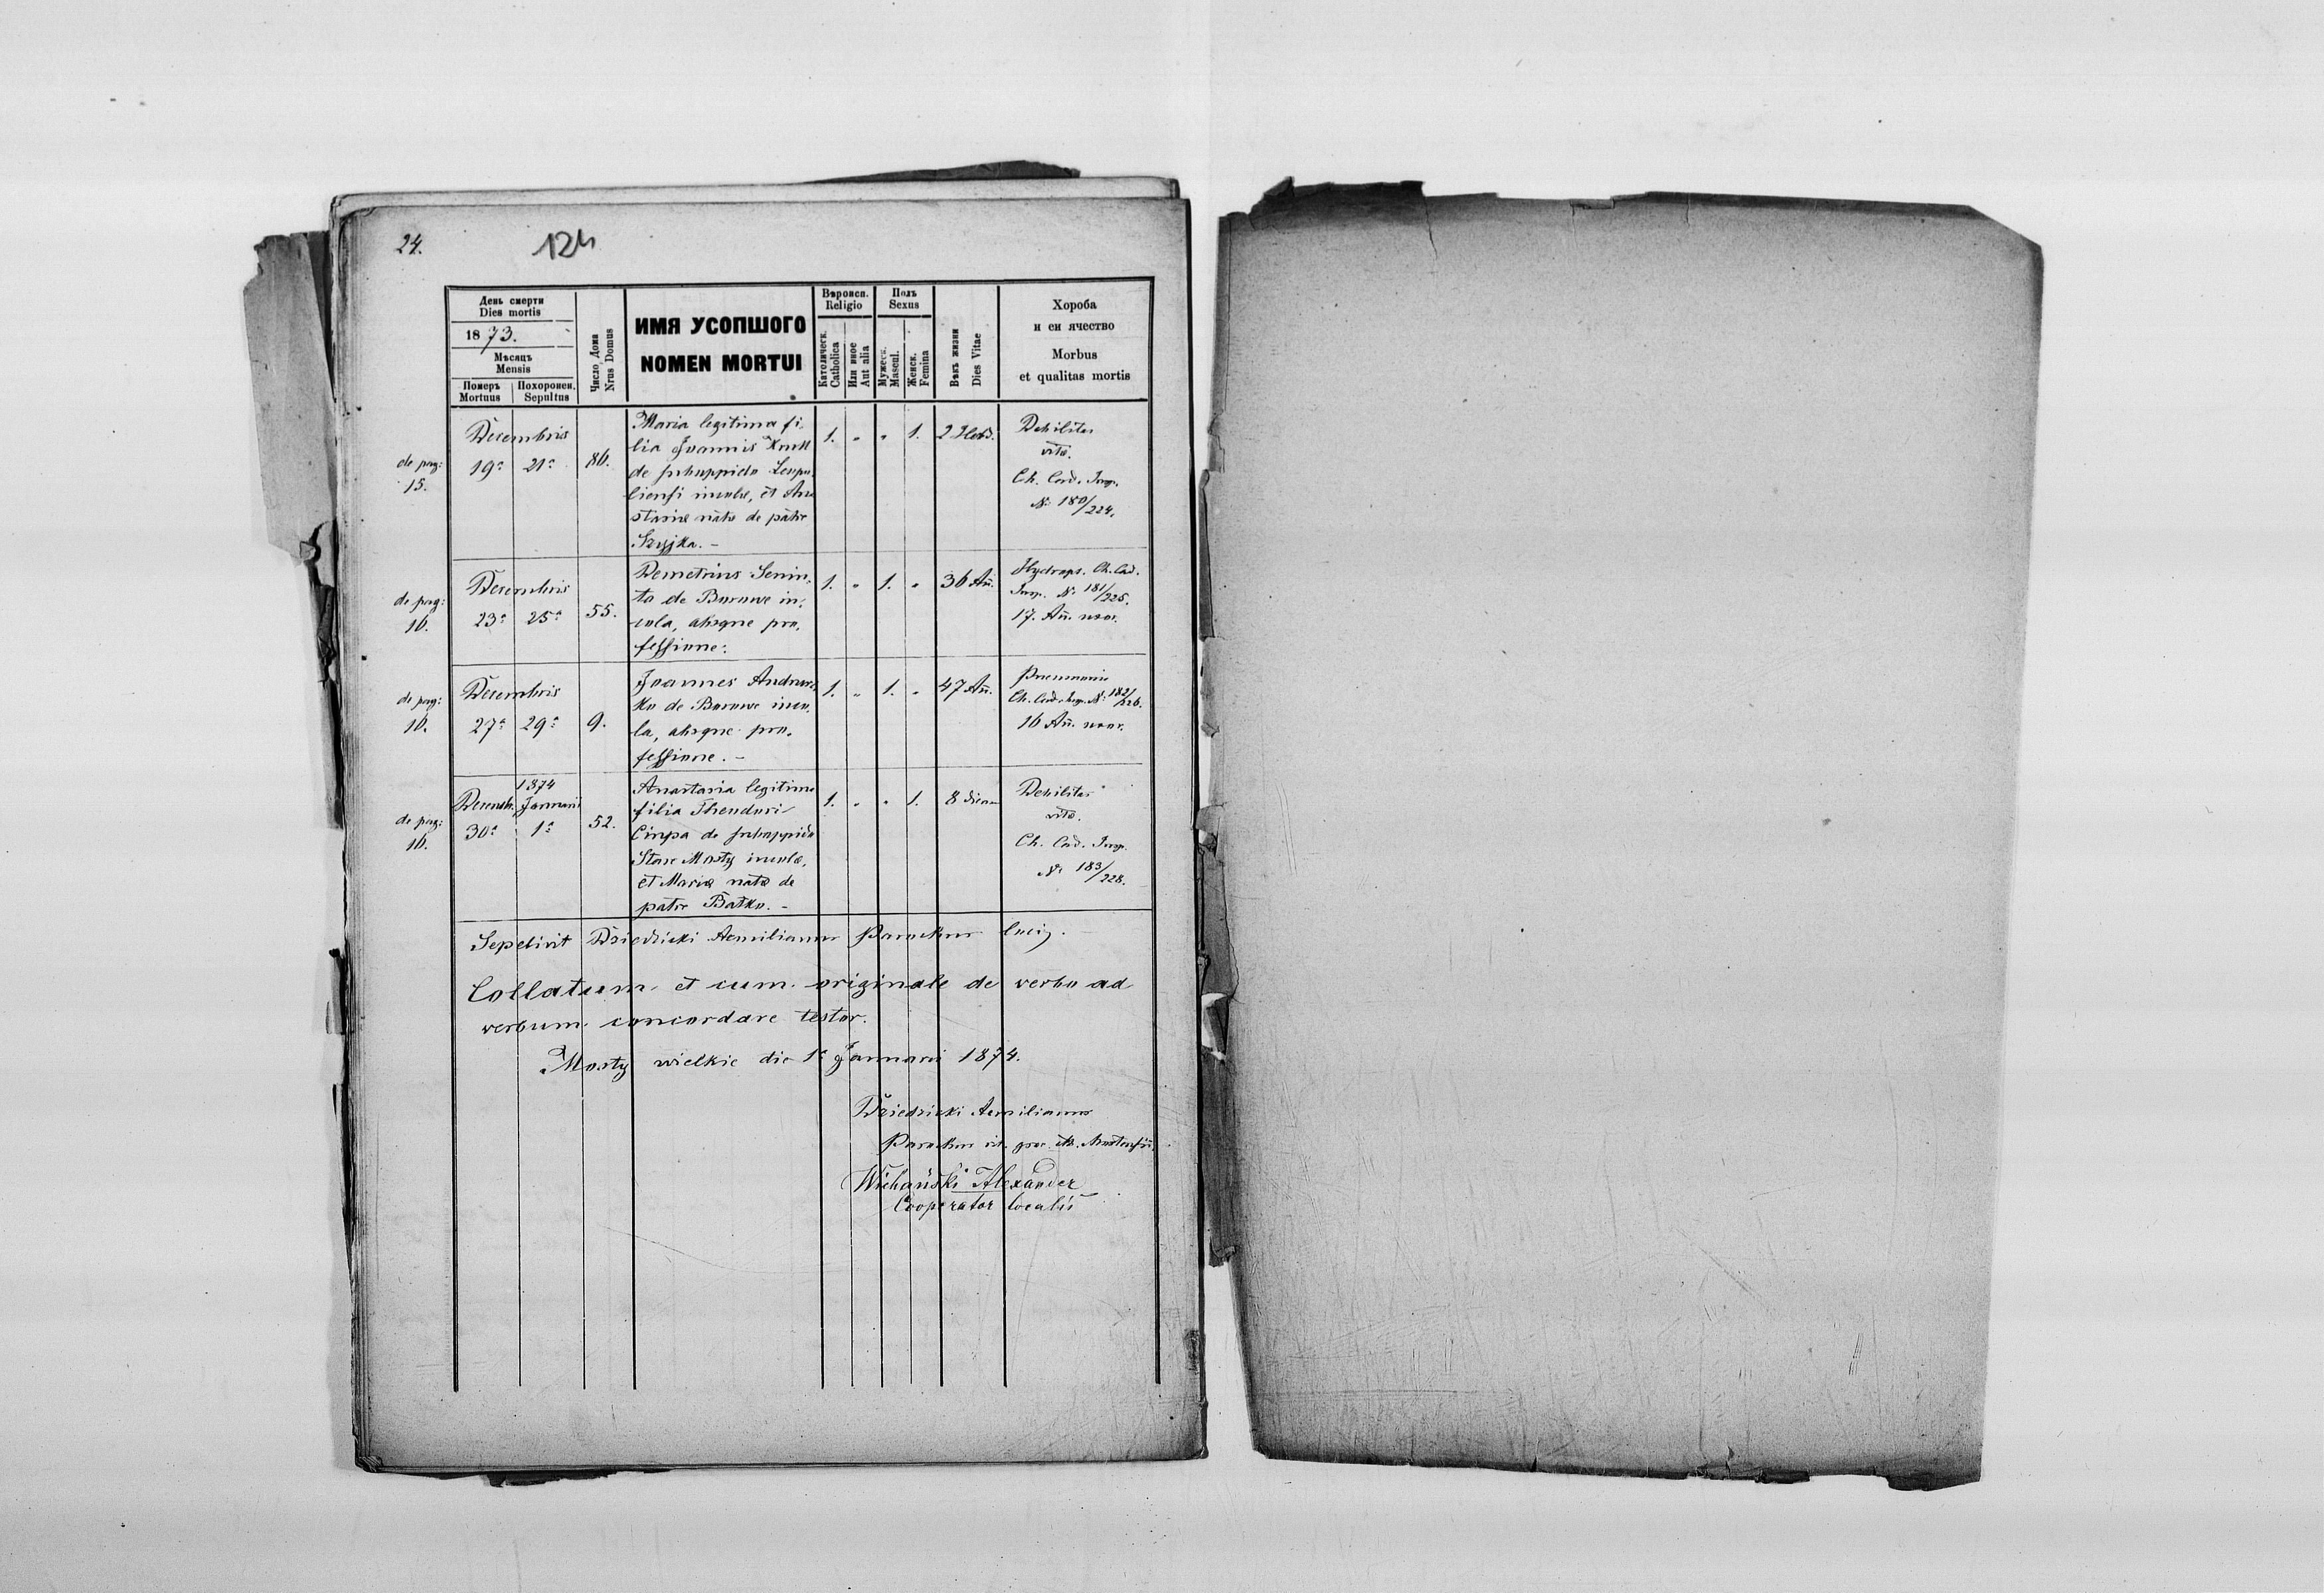 24.
124
День смерти
Dies mortis
1873.
Мѣсяць
Mensis
Померъ
Mortuus
Похоронен.
Sepultus
Число Дома
Nrus Domus
ИМЯ УСОПШОГО
NOMEN MORTUI
Вѣроисп.
Religio
Католическ.
Catholica
Или иное
Aut alia
Полъ
Sexus
Мужеск.
Mascul.
Женск.
Femina
Вѣкъ жизни
Dies Vitae
Хороба
и еи ячество
Morbus
et qualitas mortis
de pag:
15.
Decembris
19a 21a
86.
Maria legitima fi,
lia Joannis
de subuppido
incolæ, et Ana
stasiæ natæ de patre
Szyjka. –
1. „ „ 1.
2 Hebd.
Debilitas
vitæ.
Ch. Cad. Insp.
No 180/224.
de pag:
16.
Decembris
23a 25a
55.
Demetrius
de Borowe in,
cola, absque pro,
fessione.
1. „ 1. „
36 An̄.
Hydrops. Ch. Cad.
Insp. No 181/225.
17. An̄. uxor.
de pag:
16.
Decembris
27a 29a
9.
Joannes
ko de Borowe inco,
la, absque pro,
fessione. –
1. „ 1. „
47 An̄.
Pneumonia
Ch. Cad. Insp. No 182/226.
16 An̄. uxor.
de pag:
16.
Decemb.
30a
1874
Januarii
1a
52.
Anastasia legitima
filia Theodori
Cinpa de subuppido
Stare Mosty incolæ,
et Mariæ natæ de
patre Batko. –
1. „ „ 1.
8 dierum
Debilitas
vitæ.
Ch. Cad. Insp.
No 183/228.
Sepelivit Dziedzicki Aemilianus Parochus loci.
Collatum et cum originale de verbo ad
verbum concordare testor.
Mosty wielkie die 1a Januarii 1874.
Dziedzicki Aemilianus
Parochus rit. gr. M. Mostensis.
Wichański Alexander
Cooperator localis